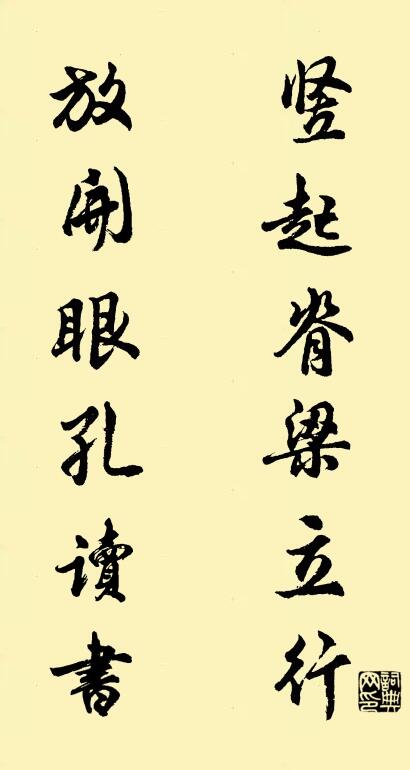 竖起脊梁立行
放開眼孔讀書
詞典网印